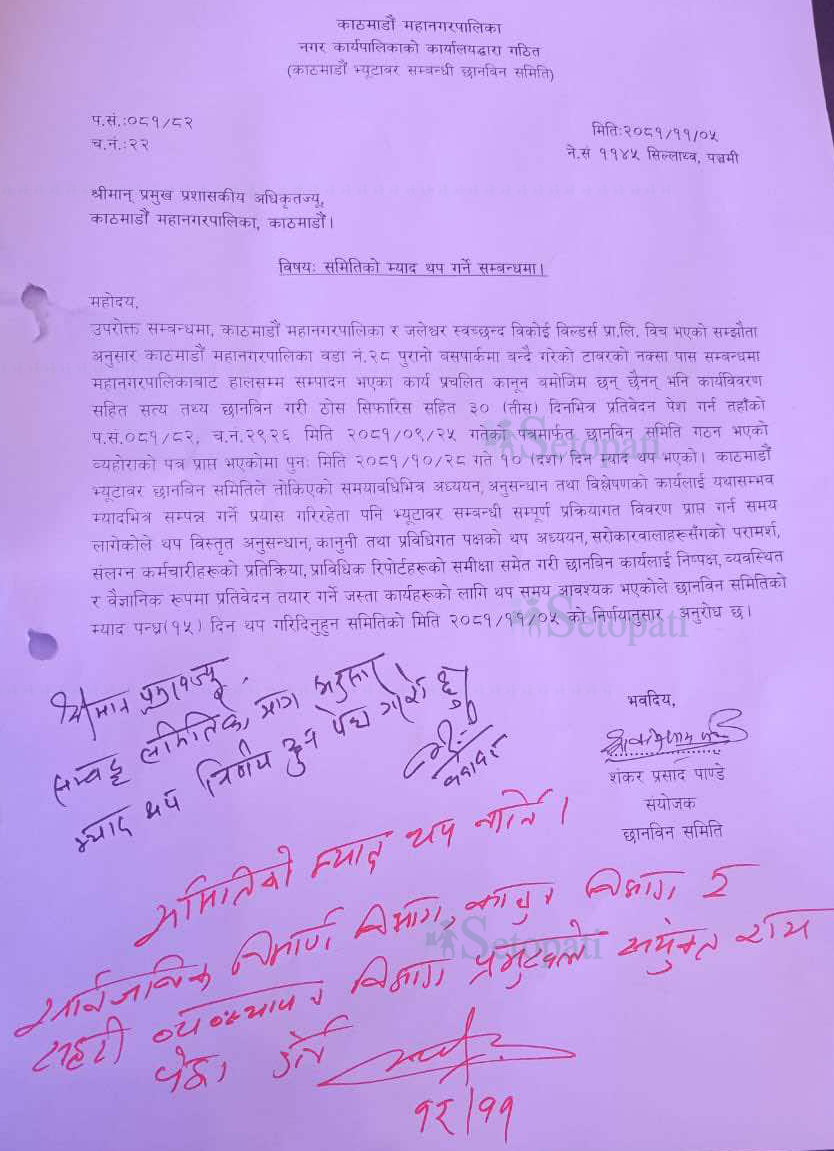 काठमाडौं महानगरपालिका
नगर कार्यपालिकाको कार्यालयद्वारा गठित
(काठमाडौं भ्यूटावर सम्बन्धी छानविन समिति)
प.सं.:०८१/८२
च.नं.:२२
मिति:२०८१/११/०५
ने.सं ११४५ सिल्लाथ्व, पञ्चमी
श्रीमान् प्रमुख प्रशासकीय अधिकृतज्यू,
काठमाडौं महानगरपालिका, काठमाडौं।
विषयः समितिको म्याद थप गर्ने सम्बन्धमा।
महोदय,
उपरोक्त सम्बन्धमा, काठमाडौं महानगरपालिका र जलेश्वर स्वच्छन्द विकोई विल्डर्स प्रा.लि. विच भएको सम्झौता
अनुसार काठमाडौं महानगरपालिका वडा नं.२८ पुरानो बसपार्कमा बन्दै गरेको टावरको नक्सा पास सम्बन्धमा
महानगरपालिकाबाट हालसम्म सम्पादन भएका कार्य प्रचलित कानून बमोजिम छन् छैनन् भनि कार्यविवरण
सहित सत्य तथ्य छानविन गरी ठोस सिफारिस सहित ३० (तीस) दिनभित्र प्रतिवेदन पेश गर्न तहाँको
प.सं.०८१/८२, च.नं.२९२६ मिति २०८१/०९/२५ गतेको पत्रमार्फत छानविन समिति गठन भएको
व्यहोराको पत्र प्राप्त भएकोमा पुनः मिति २०८१/१०/२८ गते १० (दश) दिन म्याद थप भएको। काठमाडौं
भ्यूटावर छानविन समितिले तोकिएको समयावधिभित्र अध्ययन, अनुसन्धान तथा विश्लेषणको कार्यलाई यथासम्भव
म्यादभित्र सम्पन्न गर्ने प्रयास गरिरहेता पनि भ्यूटावर सम्बन्धी सम्पूर्ण प्रक्रियागत विवरण प्राप्त गर्न समय
लागेकोले थप विस्तृत अनुसन्धान, कानुनी तथा प्रविधिगत पक्षको थप अध्ययन, सरोकारवालाहरूसँगको परामर्श,
संलग्न कर्मचारीहरूको प्रतिक्रिया, प्राविधिक रिपोर्टहरूको समीक्षा समेत गरी छानविन कार्यलाई निष्पक्ष, व्यवस्थित
र वैज्ञानिक रूपमा प्रतिवेदन तयार गर्ने जस्ता कार्यहरूको लागि थप समय आवश्यक भएकोले छानविन समितिको
म्याद पन्ध्र(१५) दिन थप गरिदिनुहुन समितिको मिति २०८१/११/०५ को निर्णयानुसार अनुरोध छ।
Setopati
Setopati
भवदिय,
शंकर प्रसाद पाण्डे
संयोजक
छानविन समिति
श्रीमान प्रप्रअज्यू,
सम्बद्ध समितिको माग अनुसार
म्याद थप निर्णय हुन पेश गरेको छु
समितिको म्याद थप गर्ने।
सार्वजनिक निर्माण विभाग, कानुन विभाग र
शहरी व्यवस्थापन विभाग प्रमुखले संयुक्त राय
पेश गर्ने
Setopati
१२/११